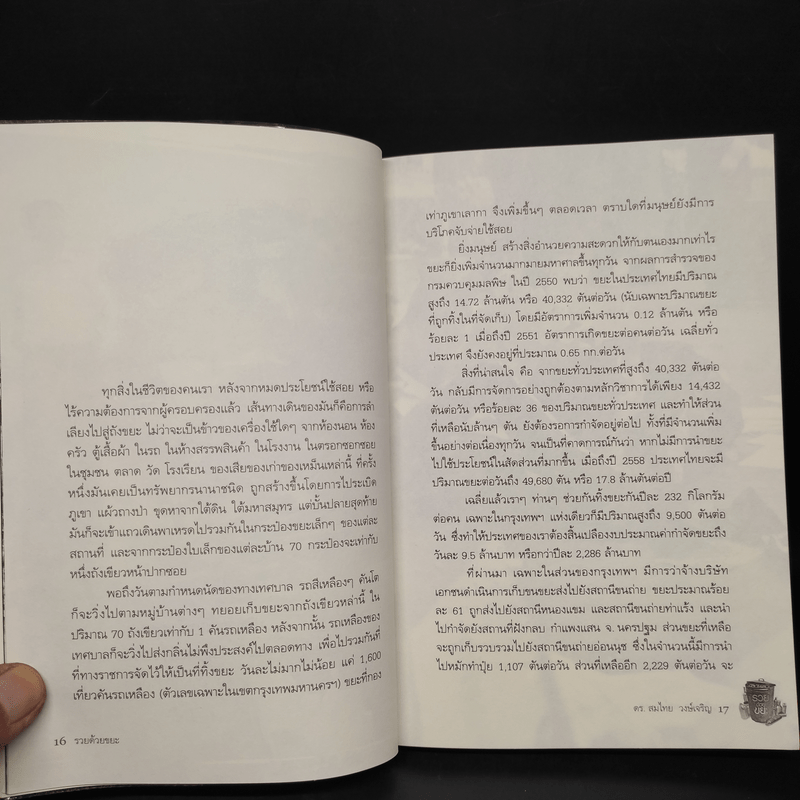 ทุกสิ่งในชีวิตของคนเรา หลังจากหมดประโยชน์ใช้สอย หรือ
ไร้ความต้องการจากผู้ครอบครองแล้ว เส้นทางเดินของมันก็คือการลำ
เลียงไปสู่ถังขยะ ไม่ว่าจะเป็นข้าวของเครื่องใช้ใดๆ จากห้องนอน ห้อง
ครัว ตู้เสื้อผ้า ในรถ ในห้างสรรพสินค้า ในโรงงาน ในตรอกซอกซอย
ในชุมชน ตลาด วัด โรงเรียน ของเสียของเก่าของเหม็นเหล่านี้ ที่ครั้ง
หนึ่งมันเคยเป็นทรัพยากรนานาชนิด ถูกสร้างขึ้นโดยการไประเบิด
ภูเขา แผ้วถางป่า ขุดหาจากใต้ดิน ใต้มหาสมุทร แต่บั้นปลายสุดท้าย
มันก็จะเข้าแถวเดินพาเหรดไปรวมกันในกระป๋องขยะเล็กๆ ของแต่ละ
สถานที่ และจากกระป๋องใบเล็กของแต่ละบ้าน 70 กระป๋องจะเท่ากับ
หนึ่งถังเขียวหน้าปากซอย
พอถึงวันตามกำหนดนัดของทางเทศบาล รถสีเหลืองๆ คันโต
ก็จะวิ่งไปตามหมู่บ้านต่างๆ ทยอยเก็บขยะจากถังเขียวเหล่านี้ ใน
ปริมาณ 70 ถังเขียวเท่ากับ 1 คันรถเหลือง หลังจากนั้น รถเหลืองของ
เทศบาลก็จะวิ่งไปส่งกลิ่นไม่พึงประสงค์ไปตลอดทาง เพื่อไปรวมกันที่
ที่ทางราชการจัดไว้ให้เป็นที่ทิ้งขยะ วันละไม่มากไม่น้อย แค่ 1,600
เที่ยวคันรถเหลือง (ตัวเลขเฉพาะในเขตกรุงเทพมหานครฯ) ขยะที่กอง
16 รวยด้วยขยะ
เท่าภูเขาเลากา จึงเพิ่มขึ้นๆ ตลอดเวลา ตราบใดที่มนุษย์ยังมีการ
บริโภคจับจ่ายใช้สอย
ยิ่งมนุษย์ สร้างสิ่งอำนวยความสะดวกให้กับตนเองมากเท่าไร
ขยะก็ยิ่งเพิ่มจำนวนมากมายมหาศาลขึ้นทุกวัน จากผลการสำรวจของ
กรมควบคุมมลพิษ ในปี 2550 พบว่า ขยะในประเทศไทยมีปริมาณ
สูงถึง 14.72 ล้านตัน หรือ 40,332 ตันต่อวัน (นับเฉพาะปริมาณขยะ
ที่ถูกทิ้งในที่จัดเก็บ) โดยมีอัตราการเพิ่มจำนวน 0.12 ล้านตัน หรือ
ร้อยละ 1 เมื่อถึงปี 2551 อัตราการเกิดขยะต่อคนต่อวัน เฉลี่ยทั่ว
ประเทศ จึงยังคงอยู่ที่ประมาณ 0.65 กก.ต่อวัน
สิ่งที่น่าสนใจ คือ จากขยะทั่วประเทศที่สูงถึง 40,332 ตันต่อ
วัน กลับมีการจัดการอย่างถูกต้องตามหลักวิชาการได้เพียง 14,432
ตันต่อวัน หรือร้อยละ 36 ของปริมาณขยะทั่วประเทศ และทำให้ส่วน
ที่เหลือนับล้านๆ ตัน ยังต้องรอการกำจัดอยู่ต่อไป ทั้งที่มีจำนวนเพิ่ม
ขึ้นอย่างต่อเนื่องทุกวัน จนเป็นที่คาดการณ์กันว่า หากไม่มีการนำขยะ
ไปใช้ประโยชน์ในสัดส่วนที่มากขึ้น เมื่อถึงปี 2558 ประเทศไทยจะมี
ปริมาณขยะต่อวันถึง 49,680 ตัน หรือ 17.8 ล้านตันต่อปี
เฉลี่ยแล้วเราๆ ท่านๆ ช่วยกันทิ้งขยะกันปีละ 232 กิโลกรัม
ต่อคน เฉพาะในกรุงเทพฯ แห่งเดียวก็มีปริมาณสูงถึง 9,500 ตันต่อ
วัน ซึ่งทำให้ประเทศของเราต้องสิ้นเปลืองงบประมาณค่ากำจัดขยะถึง
วันละ 9.5 ล้านบาท หรือกว่าปีละ 2,286 ล้านบาท
ที่ผ่านมา เฉพาะในส่วนของกรุงเทพฯ มีการว่าจ้างบริษัท
เอกชนดำเนินการเก็บขนขยะส่งไปยังสถานีขนถ่าย ขยะประมาณร้อย
ละ 61 ถูกส่งไปยังสถานีหนองแขม และสถานีขนถ่ายท่าแร้ง และนำ
ไปกำจัดยังสถานที่ฝังกลบ กำแพงแสน จ.นครปฐม ส่วนขยะที่เหลือ
จะถูกเก็บรวบรวมไปยังสถานีขนถ่ายอ่อนนุช ซึ่งในจำนวนนี้มีการนำ
ไปหมักทำปุ๋ย 1,107 ตันต่อวัน ส่วนที่เหลืออีก 2,229 ตันต่อวัน จะ
ดร. สมไทย วงษ์เจริญ 17
รวย
ขยะ